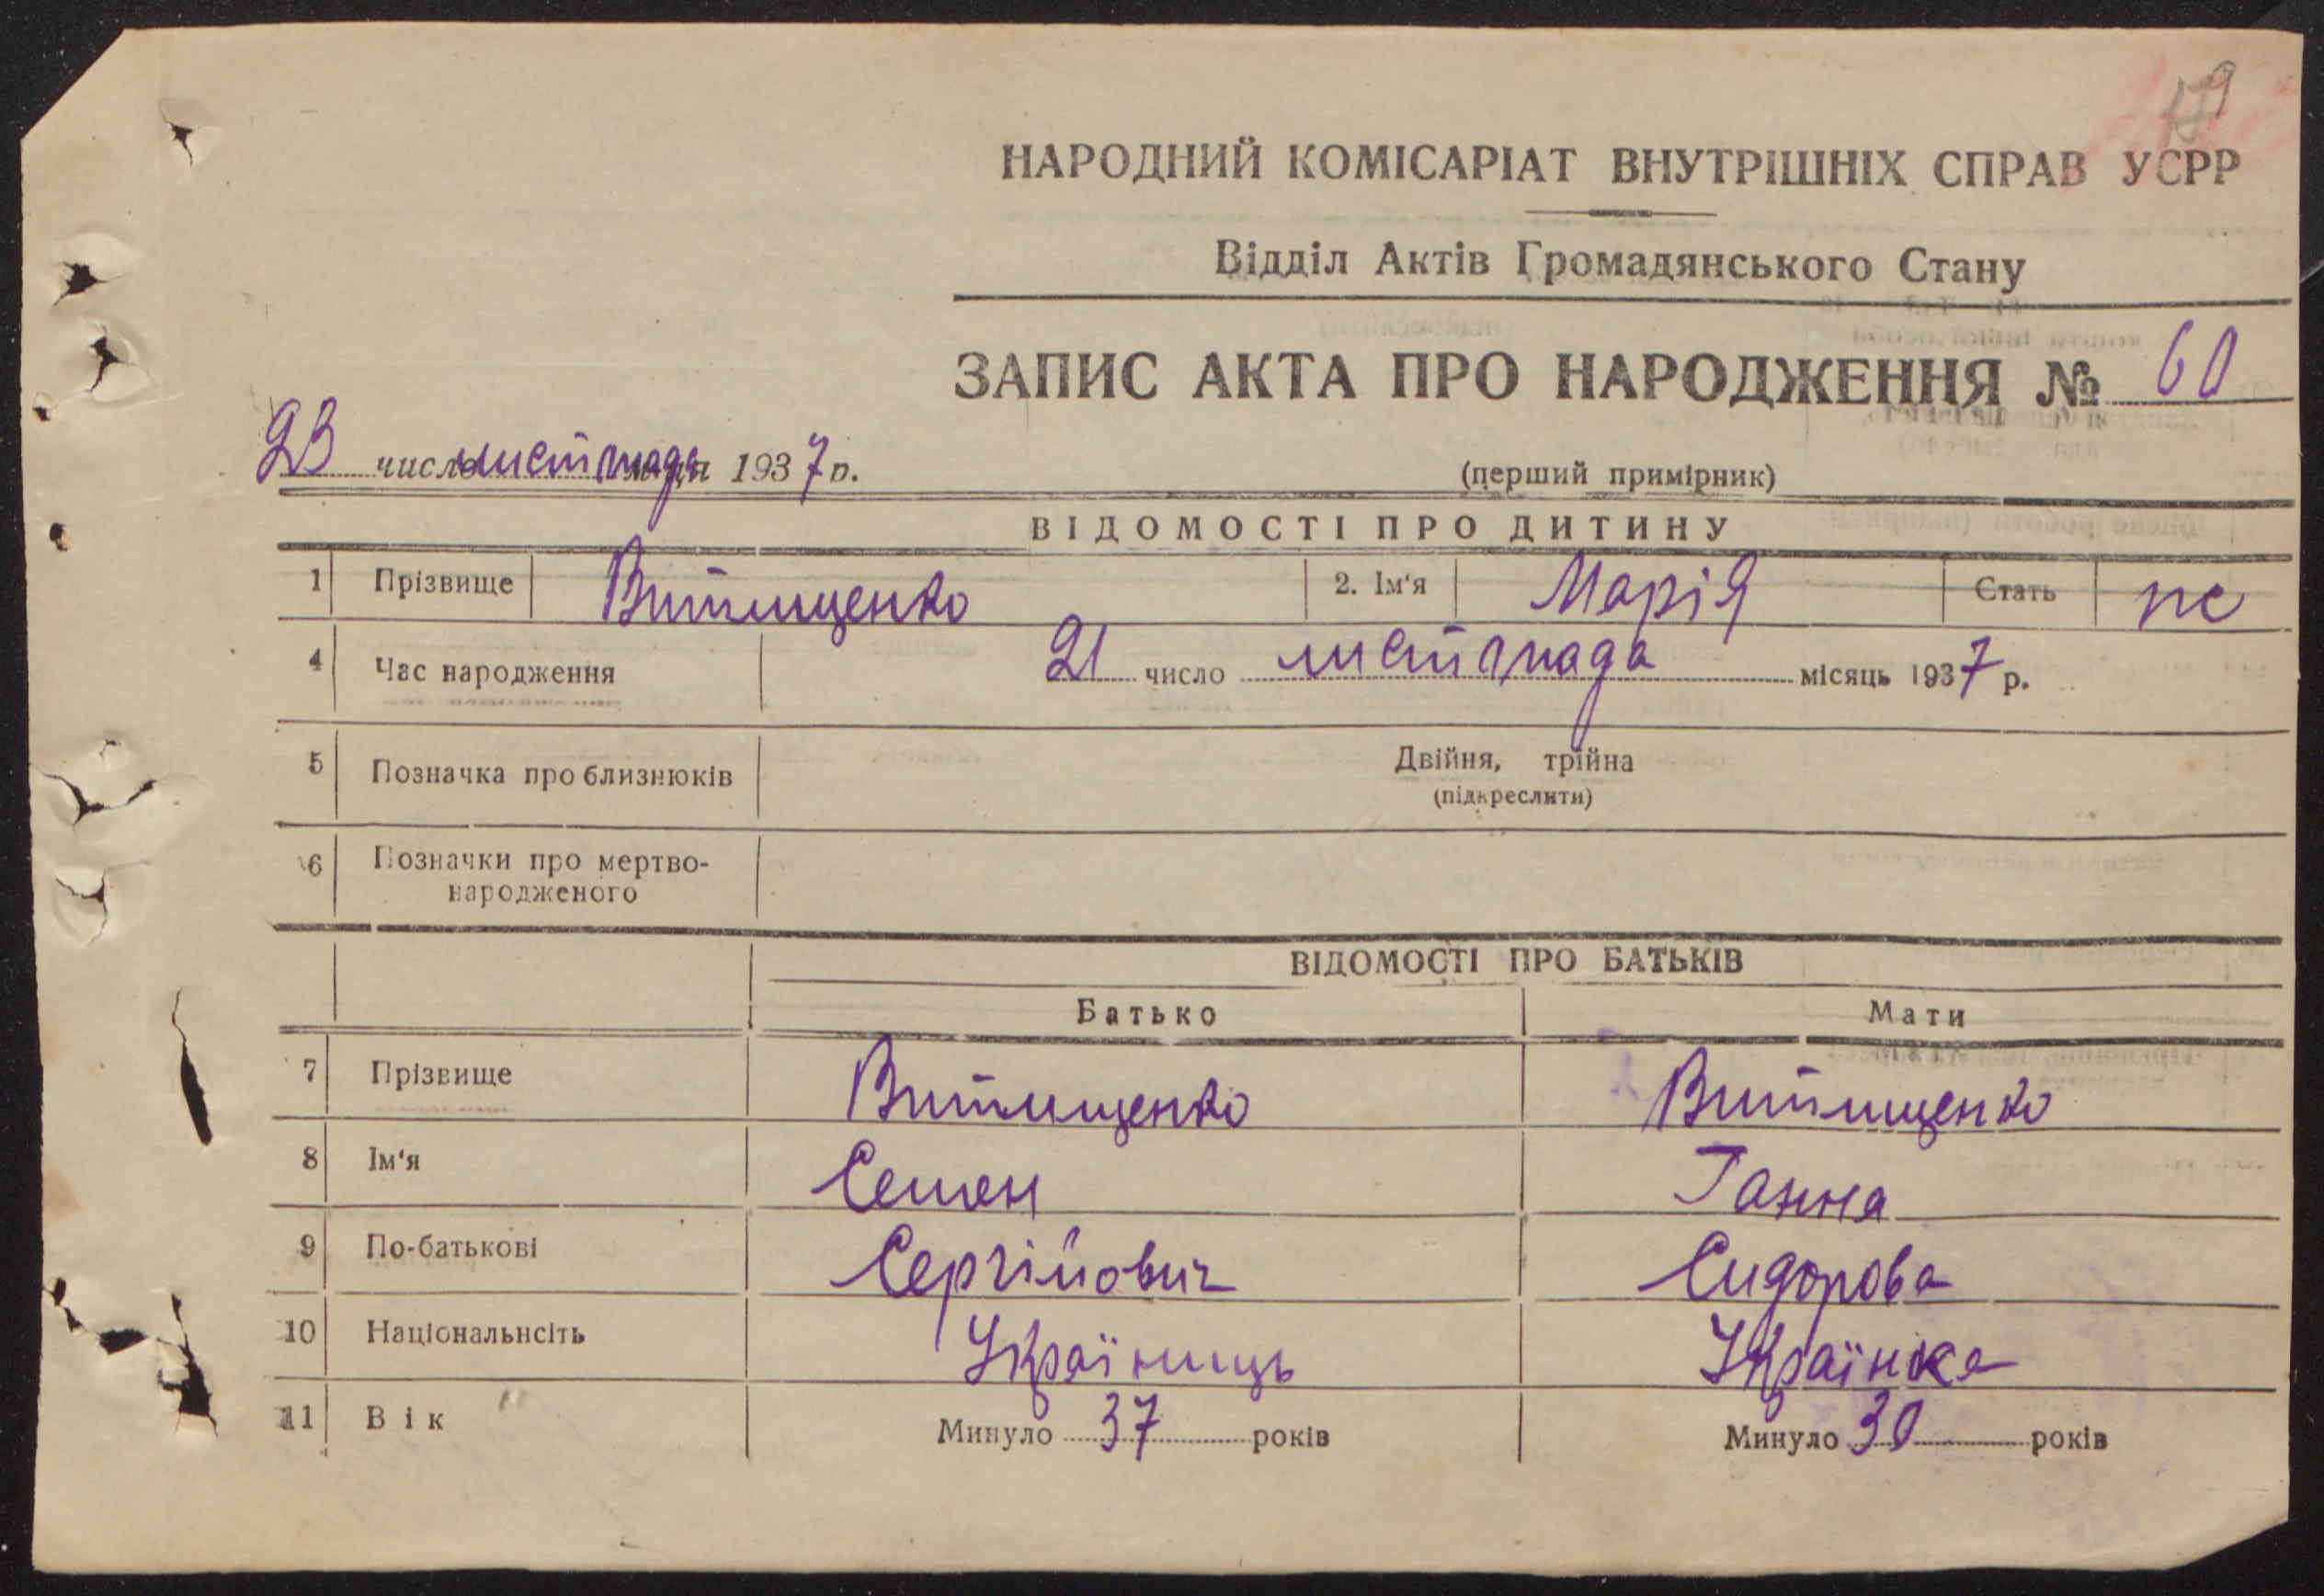 179
НАРОДНИЙ КОМІСАРІАТ ВНУТРІШНІХ СПРАВ УСРР
Відділ Актів Громадянського Стану
ЗАПИС АКТА ПРО НАРОДЖЕННЯ № 60
23 число листопада м-ця 1937 р.
(перший примірник)
ВІДОМОСТІ ПРО ДИТИНУ
1 Прізвище Витищенко 2. Ім'я Марія Стать
4 Час народження 21 число листопада місяць 1937 р.
5 Позначка про близнюків Двійня, трійна
(підкреслити)
6 Позначки про мертво-
народженого
ВІДОМОСТІ ПРО БАТЬКІВ
Батько Мати
7 Прізвище Витищенко Витищенко
8 Ім'я Семен Ганна
9 По-батькові Сергійович Сидорова
10 Національнсіть Україниць Українка
11 Вік Минуло 37 років Минуло 30 років